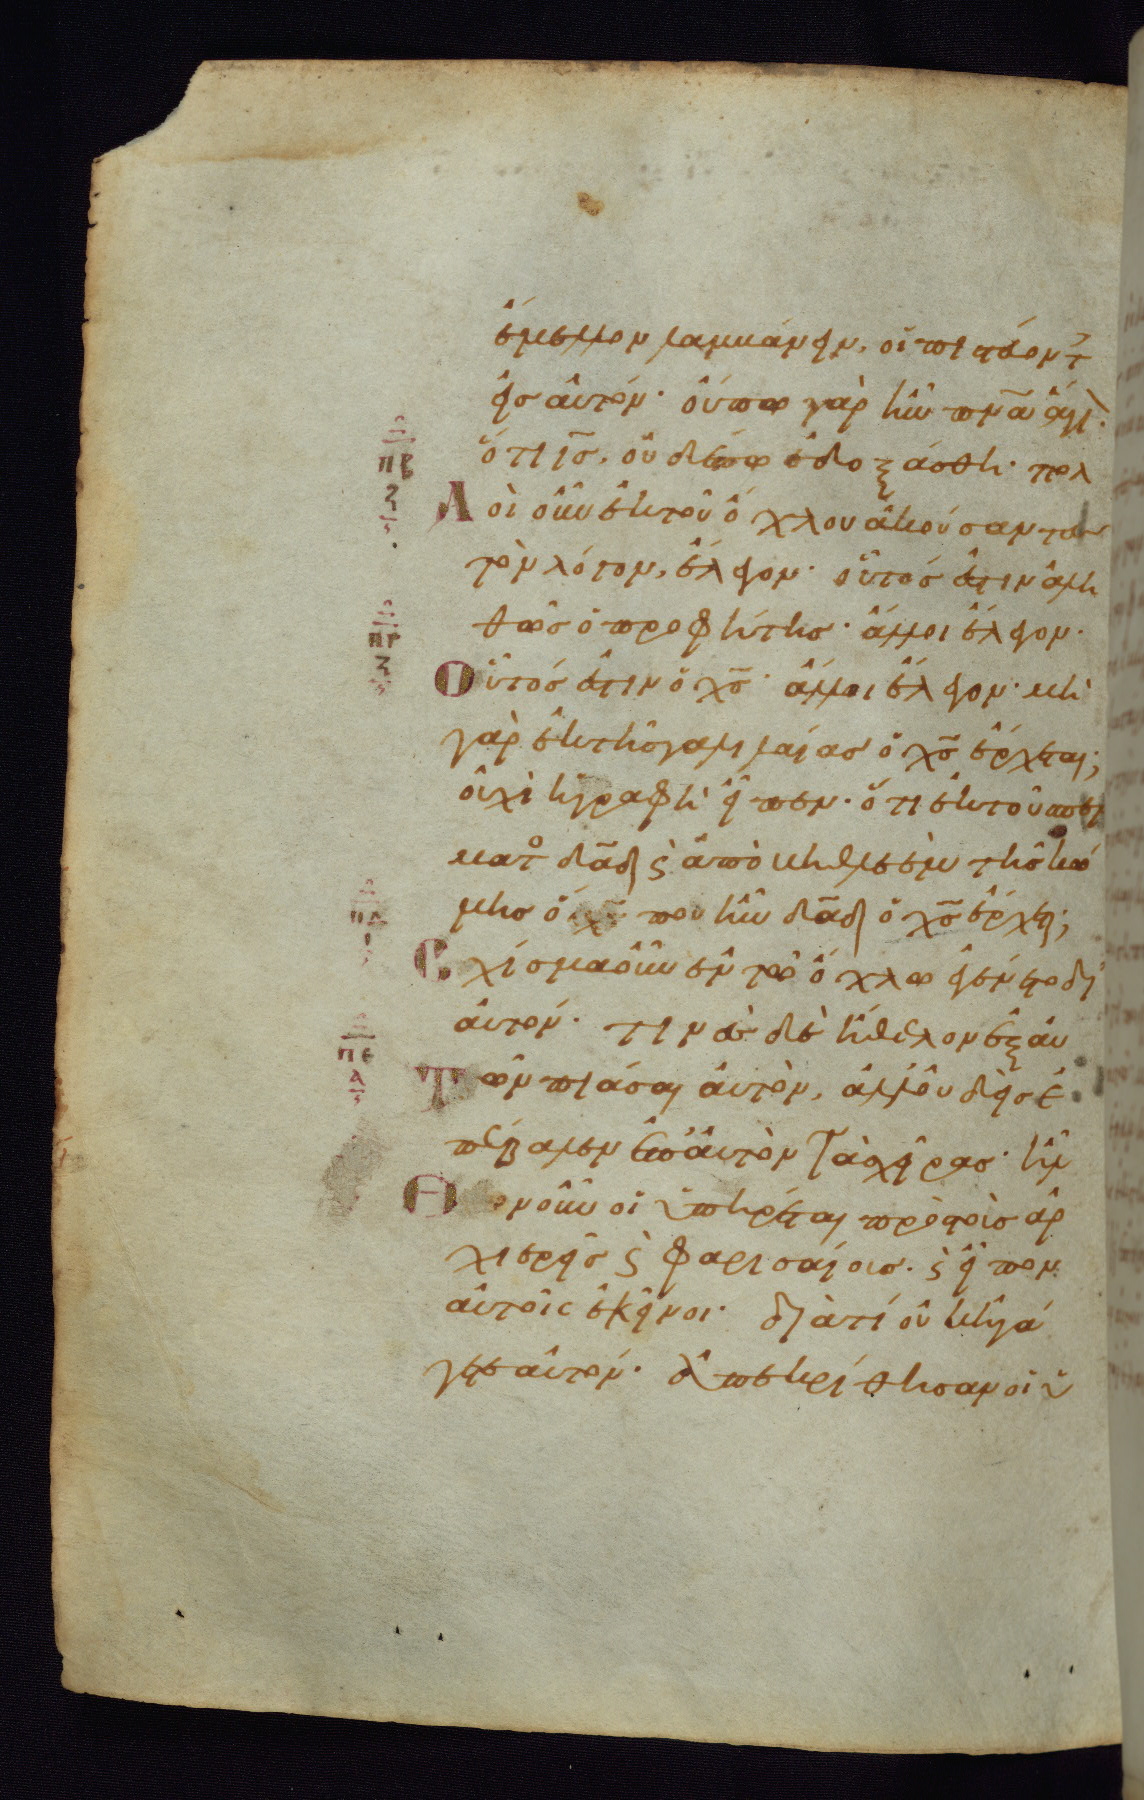 ἔμελλον λαμβάνειν, οἱ πιστεύοντ
εἰς αὐτόν· οὔπω γὰρ ἦν πν̅α ἅγι·
ὅτι ι̅ς, οὐδέπω ἐδοξάσθη· πολ
πβ
ζ
λοὶ οὖν ἐκ τοῦ ὄχλου ἀκούσαντες
τὸν λόγον, ἔλεγον· οὗτός ἐστιν ἀλη
θῶς ὁ προφήτης· ἄλλοι ἔλεγον·
πγ
ζ
Οὗτός ἐστιν ὁ χ̅ς· ἄλλοι ἔλεγον· μὴ
γὰρ ἐκ τῆς γαλιλαίας ὁ χ̅ς ἔρχεται;
οὐχὶ ἡ γραφὴ εἶπεν· ὅτι ἐκ τοῦ σπέρ
ματο δα̅δ ϛ ἀπὸ βηθλεὲμ τῆς κώ
μης ὅπου ἦν δα̅δ ὁ χ̅ς ἔρχεται;
πδ
Σχίσμα οὖν ἐν τῷ ὄχλῳ ἐγένετο δι
αὐτόν· τινὲς δὲ ἤθελον ἐξ αὐ
πε
α
τῶν πιάσαι αὐτὸν, ἀλλ' οὐδεὶς ἐ
πέβαλεν ἐπ' αὐτὸν τὰς χεῖρας· ἦλ
Θον οὖν οἱ ὑπηρέται πρὸς τοὺς ἀρ
χιερεῖς ϛ φαρισαίους· ϛ εἶπον
αὐτοῖς ἐκεῖνοι· διατί οὐκ ἠγά
γετε αὐτόν· ἀπεκρίθησαν οἱ ὑ